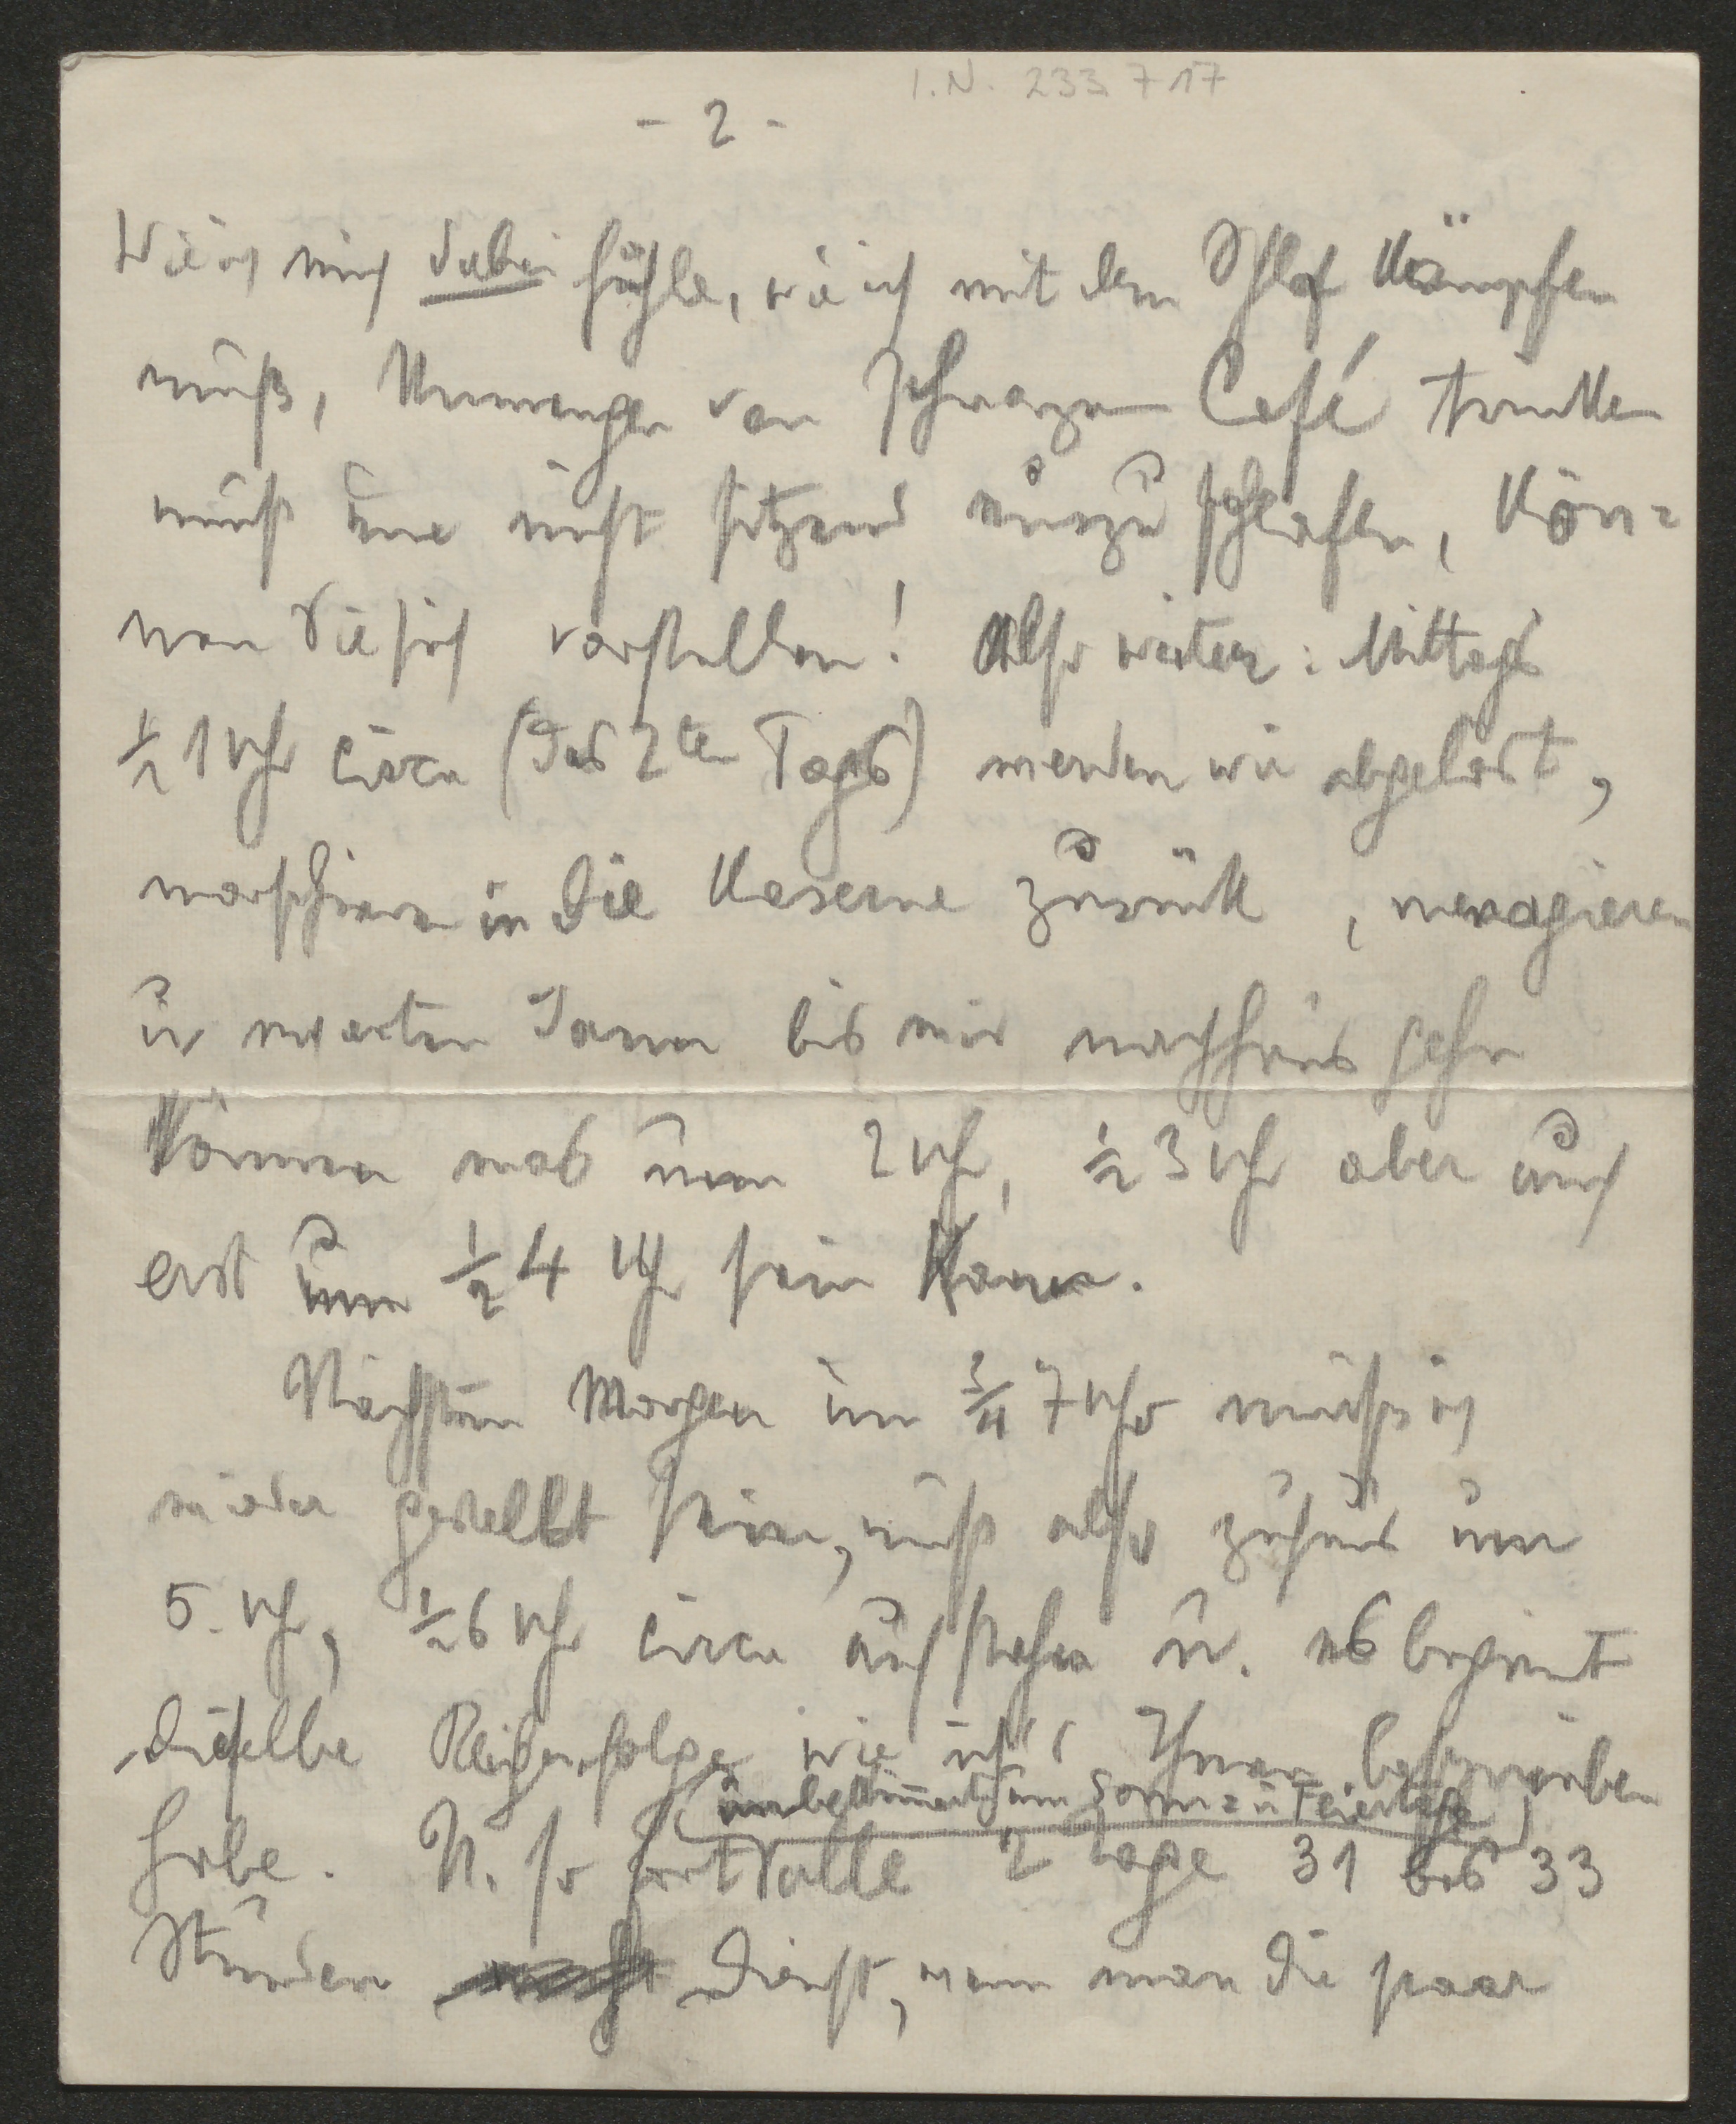 I.N. 233717
- 2 -
Wie ich mich dabei fühle, wie ich mit dem Schlaf kämpfen
muß, Unmengen von schwarzen Café trinken
muß um nicht sitzend einzuschlafen, kön=
nen Sie sich vorstellen! Also weiter: Mittags
½ 1 Uhr circa (des 2ten Tags) werden wir abgelöst,
marschieren in die Kaserne zurück, menagieren
u warten dann bis wir nachhaus gehn
können was um 2 Uhr, ½ 3 Uhr aber auch
erst um ½ 4 Uhr sein kann.
Nächsten Morgen um ¾ 7 Uhr muß ich
wieder gestellt sein, muß also zuhaus um
5. Uhr, ½ 6 Uhr circa aufstehen u. es beginnt
dieselbe Reihenfolge wie ich's Ihnen beschrieben
(unbestimmt um Sonn= u Feiertage)
habe. U. so fort alle 2 Tage 31 bis 33
Stunden Dienst, wenn man die paar